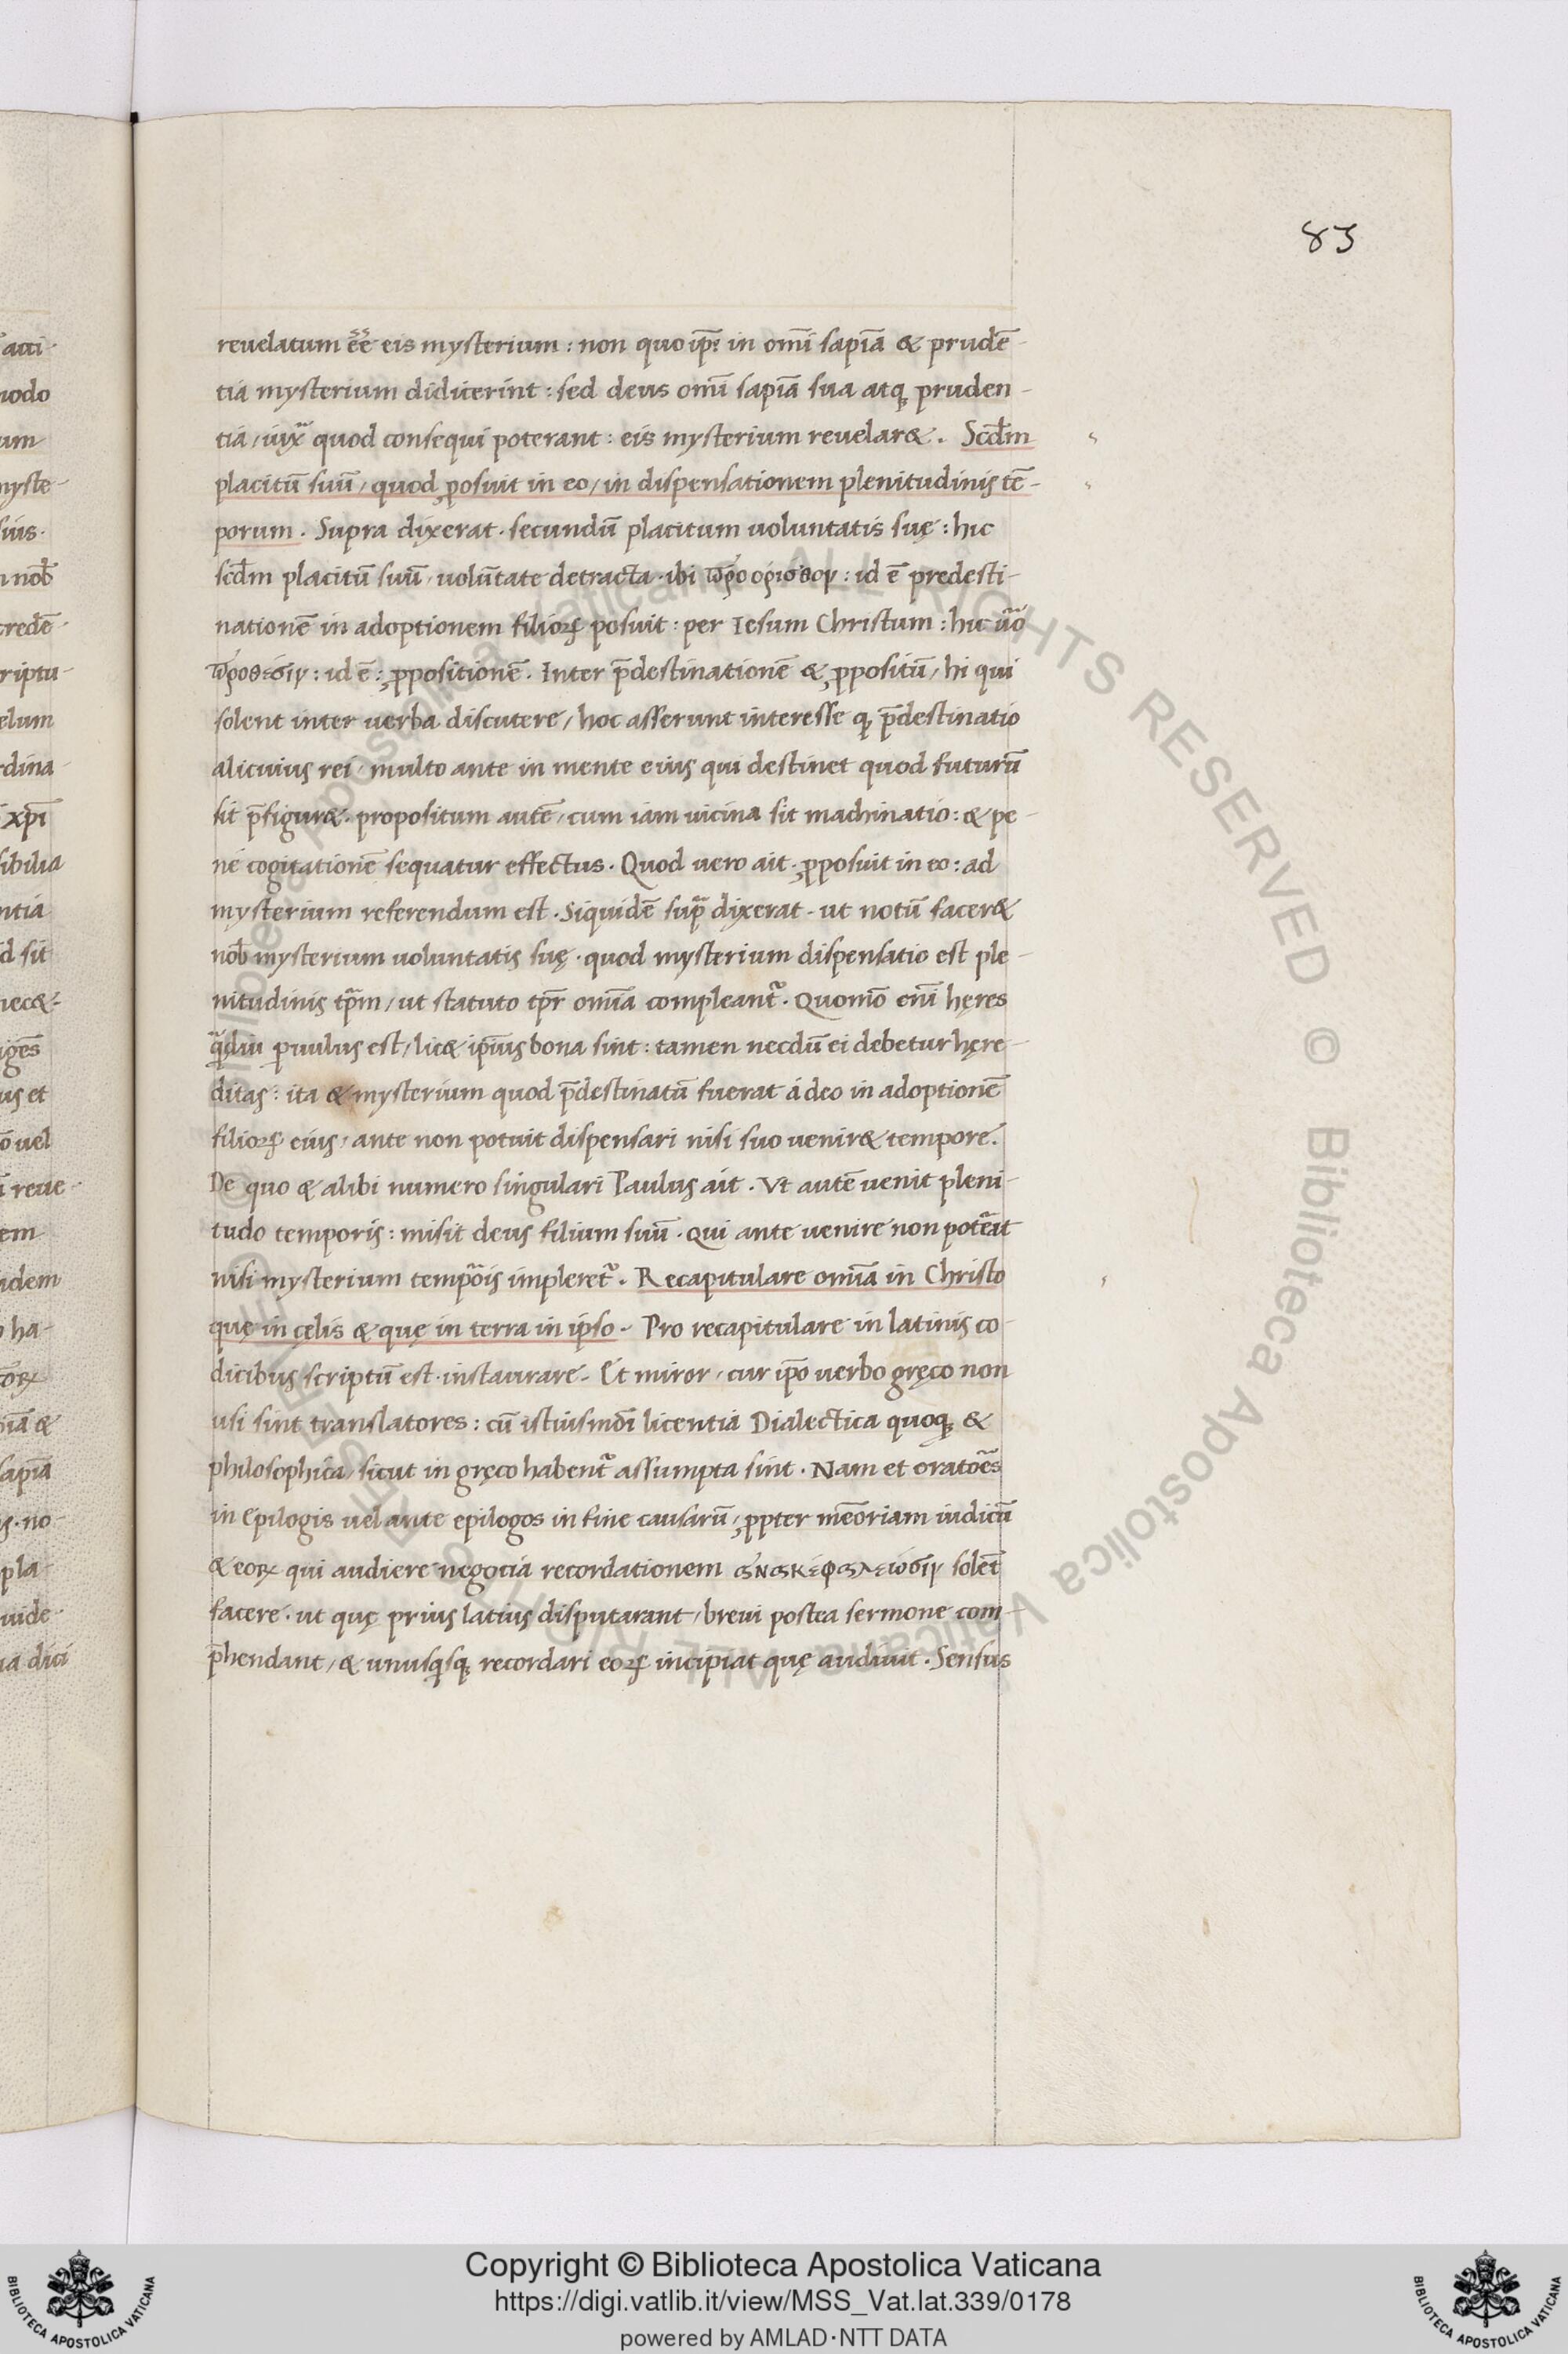 83
reuelatum ee̅ eis mysterium : non quo ip̅i in om̅i sapia̅ & prude̅-
tia mysterium didicerint : sed deus om̅i sapia̅ sua atq; pruden-
tia / iuxa̅ quod consequi poterant : eis mysterium reuelar&. Scd̅m
placitu̅ suu̅ / quod ꝓposuit in eo / in dispensationem plenitudinis te̅-
porum. Supra dixerat · secundu̅ placitum uoluntatis suę : hic
scd̅m placitu̅ suu̅ · uolu̅tate detracta · ibi προορισμον : id e̅ predesti-
natione̅ in adoptionem filioꝝ posuit : per Iesum Christum : hic u̅o
προθεσιν : id e̅ : ꝓpositione̅. Inter p̅destinatione̅ & ꝓpositu̅ / hi qui
solent inter uerba discutere / hoc asserunt interesse q; p̅destinatio
alicuius rei / multo ante in mente eius qui destinet quod futuru̅
sit p̅figur& · propositum aute̅ / cum iam uicina sit machinatio : & pe-
ne cogitatione̅ sequatur effectus. Quod uero ait · ꝓposuit in eo : ad
mysterium referendum est. Siquide̅ sup̅ dixerat · ut notu̅ facer&
nob̅ mysterium uoluntatis suę · quod mysterium dispensatio est ple-
nitudinis tp̅m / ut statuto tp̅r om̅ia compleant᷑. Quom̅o eni̅ hęres
qᷓdiu ꝑuulus est / lic& ip̅ius bona sint : tamen necdu̅ ei debetur hęre-
ditas : ita & mysterium quod p̅destinatu̅ fuerat á deo in adoptione̅
filioꝝ eius / ante non potuit dispensari nisi suo uenir& tempore.
De quo & alibi numero singulari Paulus ait. Vt aute̅ uenit pleni-
tudo temporis : misit deus filium suu̅. Qui ante uenire non pote̅at
nisi mysterium temp̅ois impleret᷑. Recapitulare om̅ia in Christo
quę in cęlis & quę in terra in ipso. Pro recapitulare in latinis co-
dicibus scriptu̅ est · instaurare. Et miror / cur ip̅o uerbo gręco non
usi sint translatores : cu̅ istiusmo̅i licentia Dialectica quoq; &
philosophica / sicut in gręco habent᷑ assumpta sint. Nam et orato̅es
in Epilogis uel ante epilogos in fine causaru̅ / ꝓpter me̅oriam iudicu̅
& eoꝝ qui audiere negocia recordationem ανακεφαλεωσιν sole̅t
facere · ut quę prius latius disputarant / breui postea sermone com-
p̅hendant / & unusqsq; recordari eoꝝ incipiat quę audiuit. Sensus
Copyright © Biblioteca Apostolica Vaticana
https://digi.vatlib.it/view/MSS_Vat.lat.339/0178
powered by AMLAD·NTT DATA
BIBLIOTECA APOSTOLICA VATICANA
BIBLIOTECA APOSTOLICA VATICANA